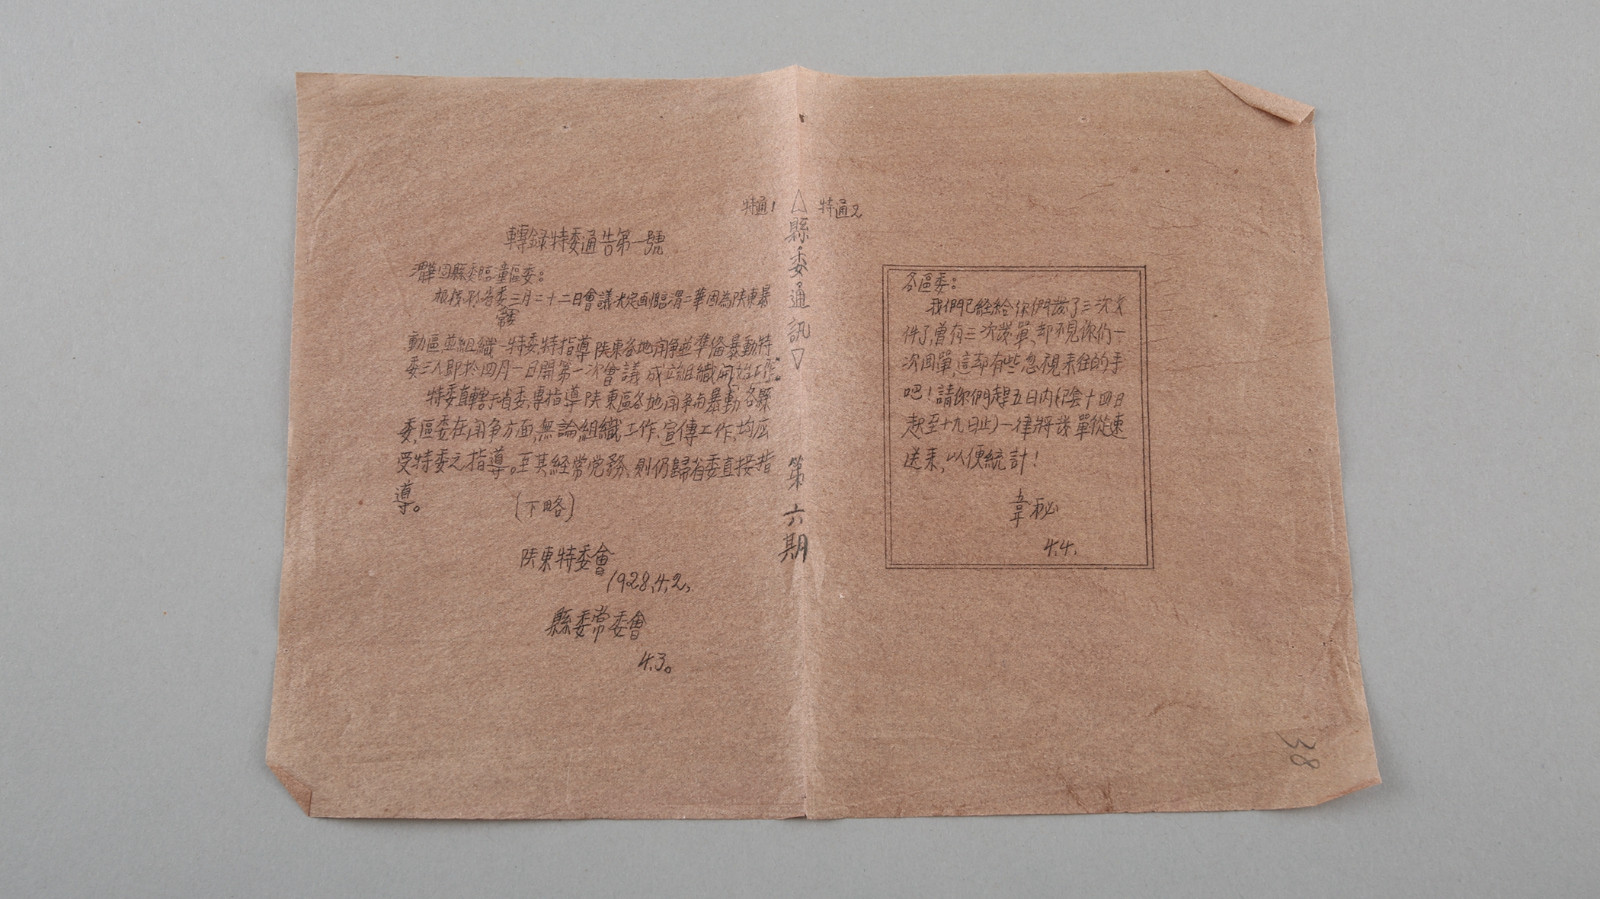 特通1
特通2
△縣委通訊▽
第六期
轉録特委通告第一號
渭華固縣委臨潼區委:
根据省委三月二十二日會議決定画臨渭二華固為陕東暴
常委
動區並組織一特委特指導陕東各地鬥争並準俻暴動特
委三人即於四月一日開第一次會議成立組織開始工作。
特委直轄于省委,專指導陕東區各地鬥争而暴動,各縣
委,區委在鬥争方面,無論組織工作,宣傳工作,均应
受特委之指導。至其經常党務,則仍歸省委直接指
導。
(下略)
陕東特委會
1928,4,2,
縣委常委會
4.3。
各區委:
我們已經給你們發了三次文
件了,曾有三次發單,却不見你们一
次回單,這却有些忽視來往的手
吧!請你們趕五日内(
起至十九日止)一律將
單從速
送来,以便統計!
韋秘
4.4.
38